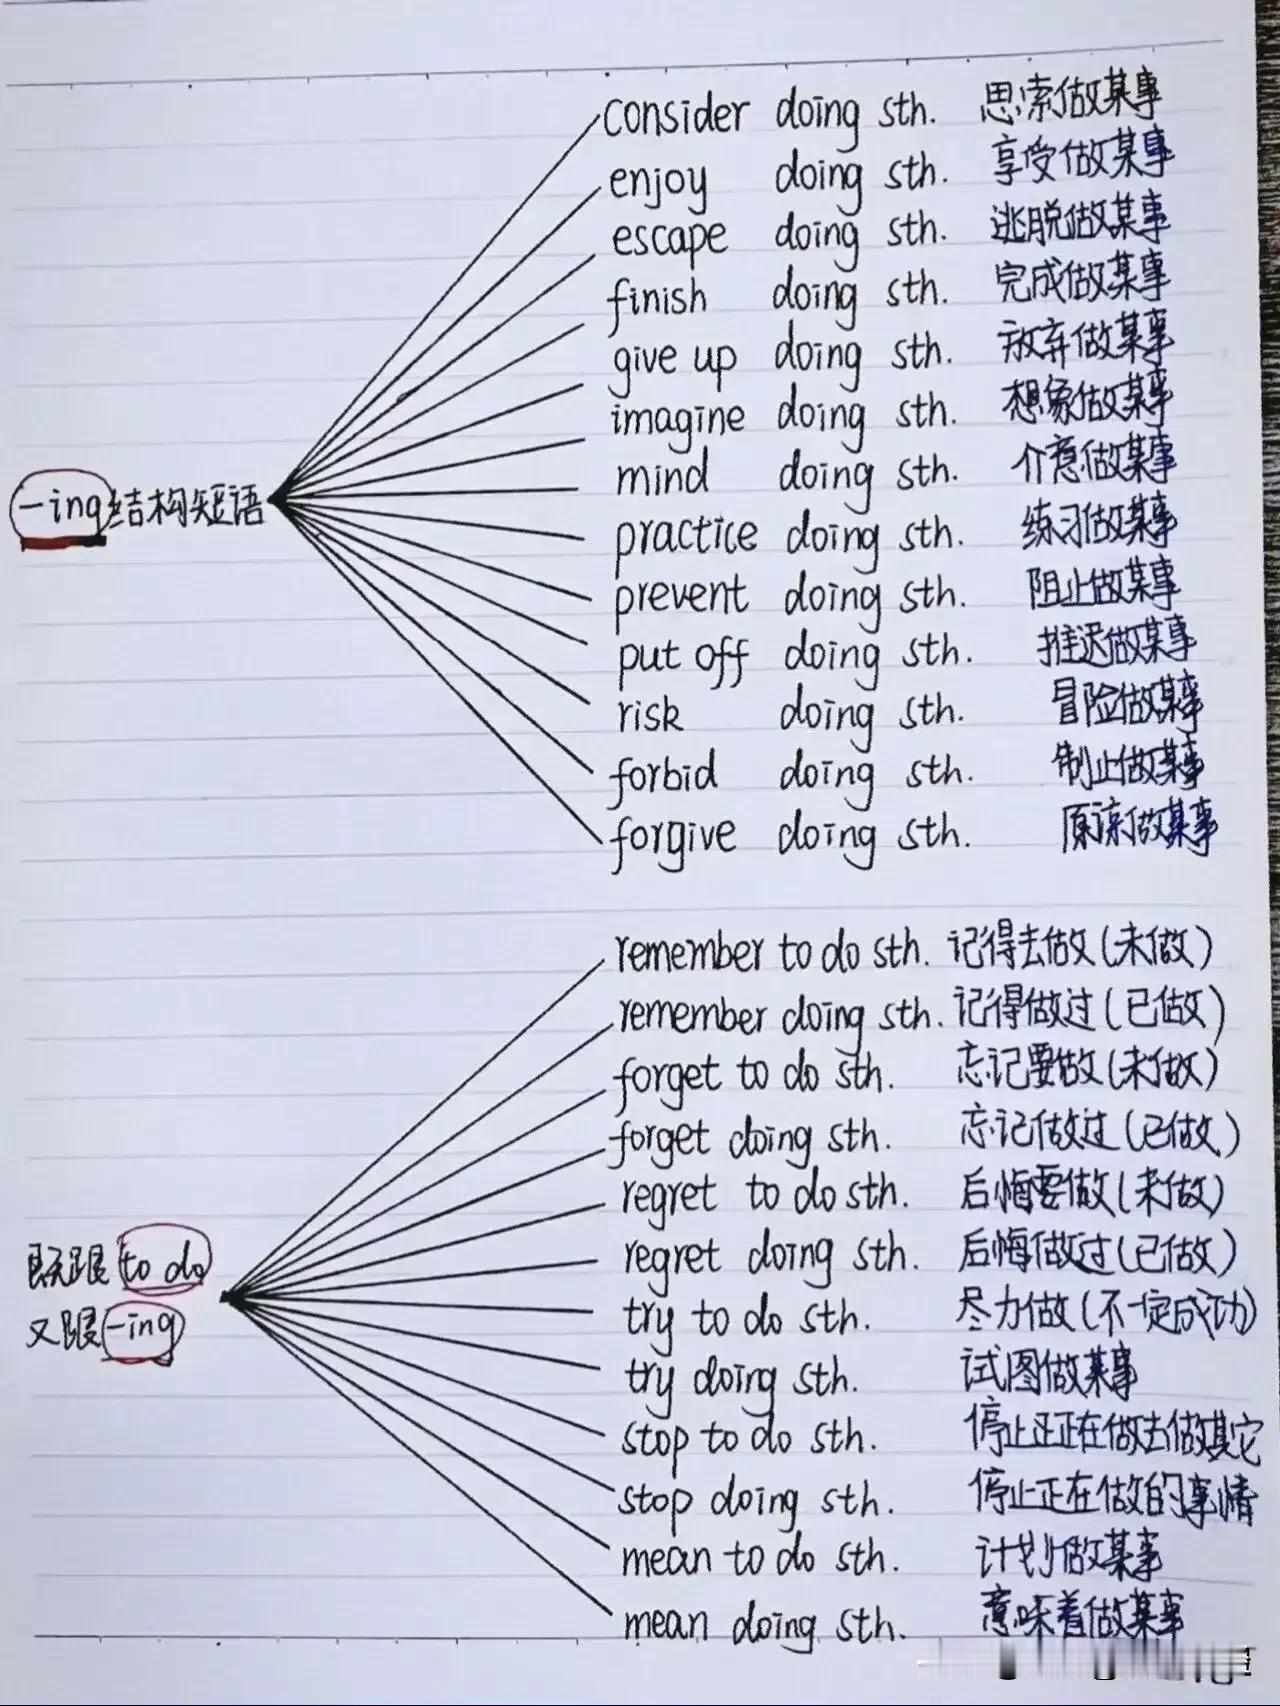 consider doing sth. 思索做某事
enjoy doing sth. 享受做某事
escape doing sth. 逃脱做某事
finish doing sth. 完成做某事
give up doing sth. 放弃做某事
imagine doing sth. 想象做某事
mind doing sth. 介意做某事
-ing结构短语
practice doing sth. 练习做某事
prevent doing sth. 阻止做某事
put off doing sth. 推迟做某事
risk doing sth. 冒险做某事
forbid doing sth. 制止做某事
forgive doing sth. 原谅做某事
remember to do sth. 记得去做(未做)
remember doing sth. 记得做过(已做)
forget to do sth. 忘记要做(未做)
forget doing sth. 忘记做过(已做)
regret to do sth. 后悔要做(未做)
regret doing sth. 后悔做过(已做)
既跟to do
又跟-ing
try to do sth. 尽力做(不一定成功)
try doing sth. 试图做某事
stop to do sth. 停止正在做去做其它
stop doing sth. 停止正在做的事情
mean to do sth. 计划做某事
mean doing sth. 意味着做某事